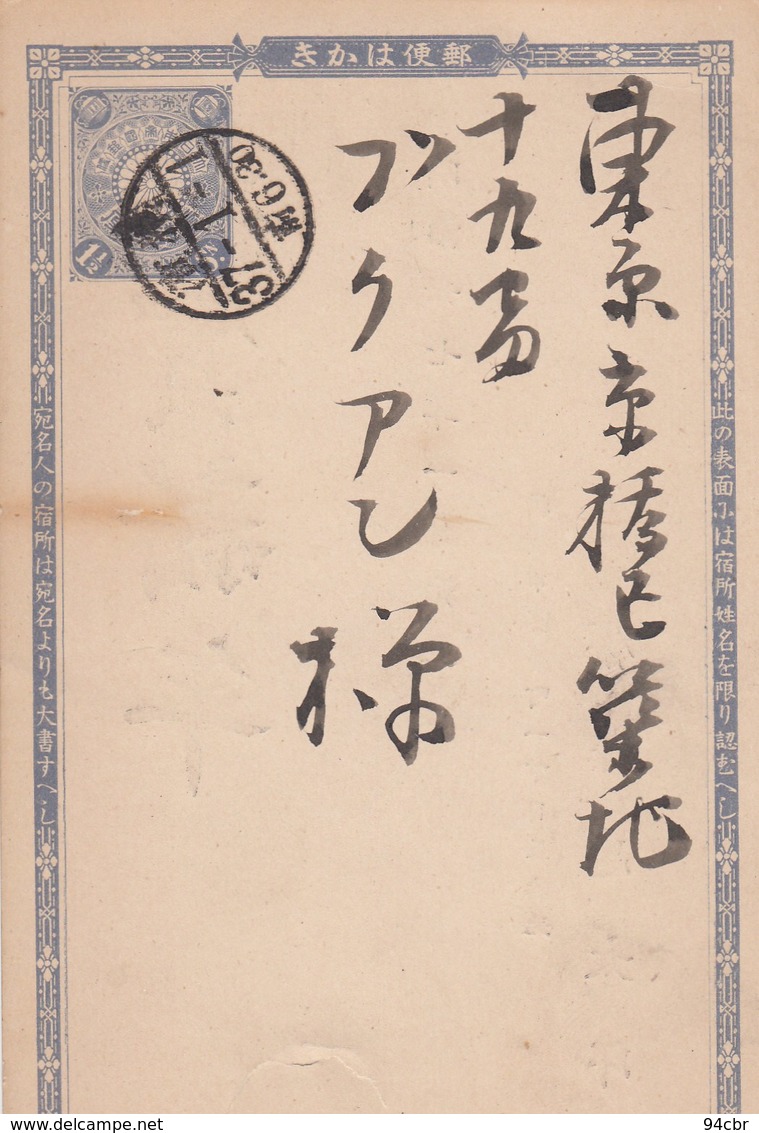 郵便はかき
此の表面には宿所姓名を限り認むへし
東京京橋区築地
十九番
フンケアン様
宛名人の宿所は宛名よりも大書すへし
1½
37-1-1
6.30
94cbr